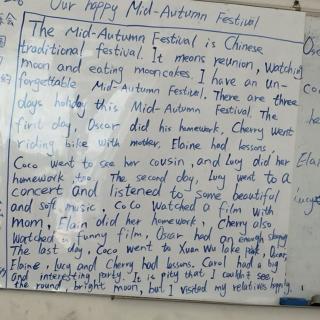 Our happy Mid-Autumn Festival
The Mid-Autumn Festival is Chinese
traditional festival. It means reunion, Watching
moon and eating mooncakes. I have an un-
forgettable Mid-Autumn Festival. There are three
days holiday this Mid-Autumn Festival. The
first day, Oscar did his homework, Cherry went
riding bike with mother, Elaine had lessons,
Coco went to see her cousin, and Lucy did her
homework, too. The second day, Lucy went to a
concert and listened to some beautiful
and soft music, Coco watched a film with
mom, Elain did her homework, Cherry also
watched a funny film, Oscar had an enough sleeping
The last day, Coco went to Xuan Wu lake park, Oscar,
Elaine, Lucy and Cherry had lessons. Carol had a big
and interesting party. It is pity that I couldn't see
the round, bright moon, but I visited my relatives happily.